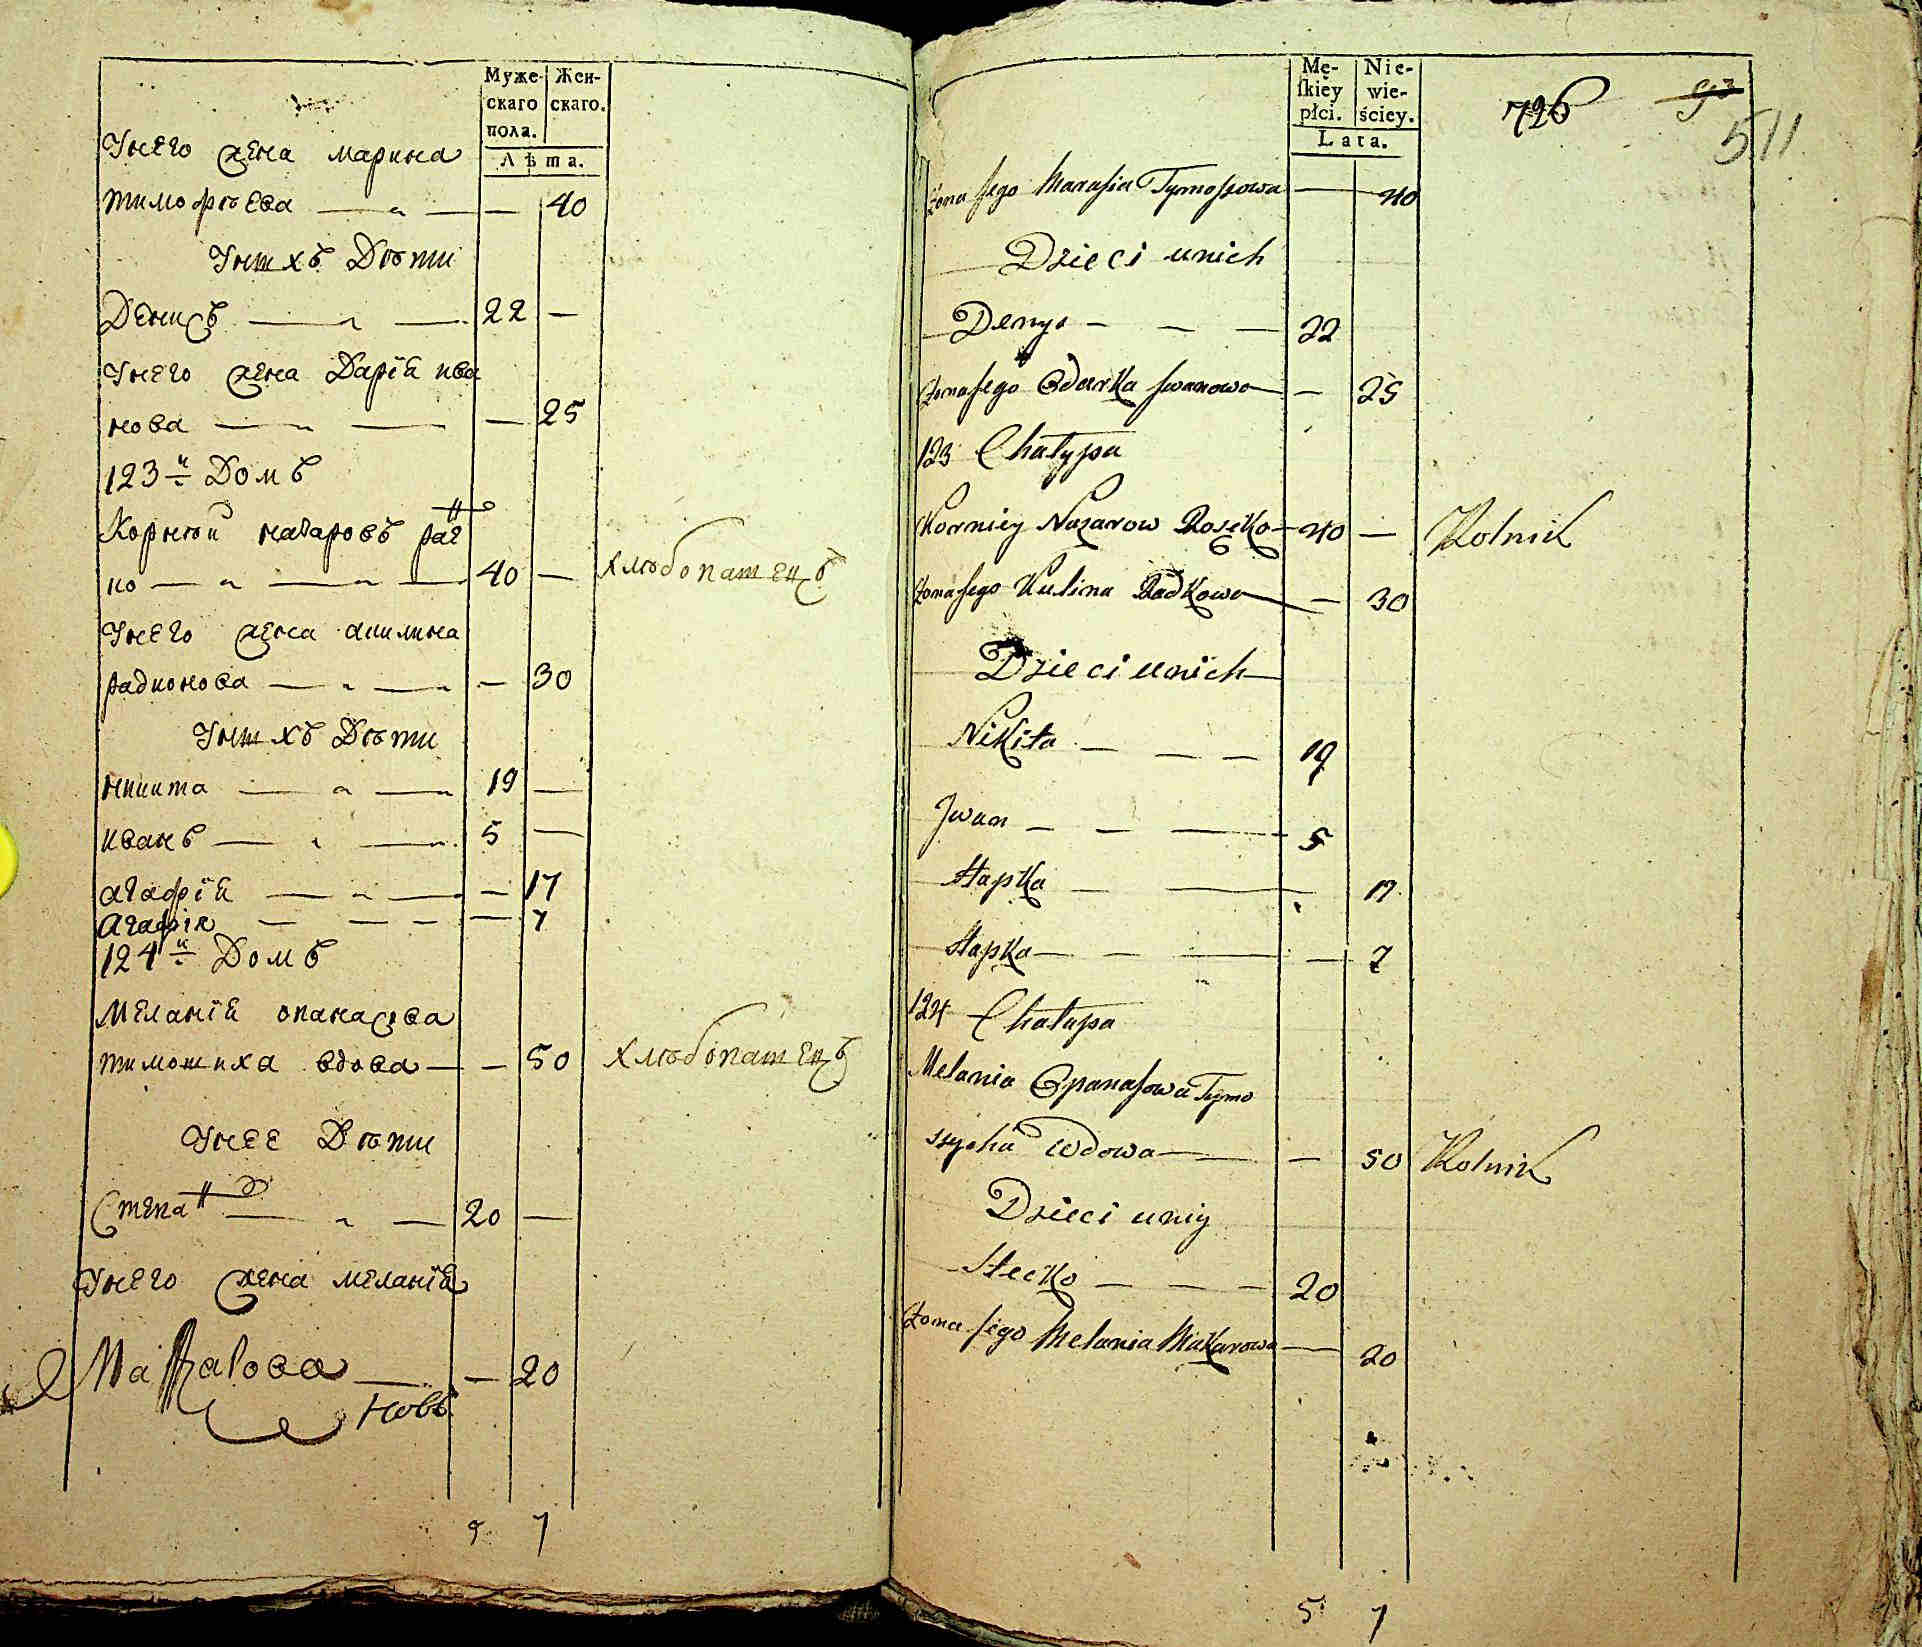 Муже-
скаго
пола.
Жен-
скаго.
Лѣта.
Унего жена марина
тимофѣева — — — 40
Унихъ Дѣти
Денисъ — — 22 —
Унего жена Дарїя ива
нова — — — 25
123й Домъ
Корнѣй назаровъ
ко — — — 40 — хлѣбопашецъ
Унего жена акилина
радионова — — — 30
Унихъ Дѣти
никита — — 19 —
иванъ — — 5 —
агафїя — — — 17
Агафія — — — 7
124й Домъ
меланїя опанасова
тимошиха вдова — — 50 хлѣбопашецъ
Унее Дѣти
Степанъ — — 20 —
Унего жена меланїя
— — 20
7
Mę-
ſkiéy
płci.
Nie-
wie-
ściey.
Lata.
726
93
511
żona jego Marasia Tymoszowa — 40
Dzieci unich
Denys — — — 22
żona jego Oderka Jwanowa — 25
123 Chałupa
Korniey Nazarow — 40 — Rolnik
żona jego Kulina Radkowa — 30
Dzieci unich
Nikita — — — 19
Jwan — — — 5
Hapka — — 17
Hapka — — — 7
124 Chałupa
Melania Opanasowa Tymo
szycha wdowa — — 50 Rolnik
Dzieci uniy
Stecko — — — 20
żona jego Melania Makarowa — 20
5 7